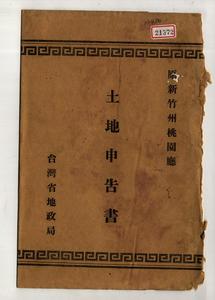 21372
陸新竹州桃園廳
土地申告書
台灣省地政局